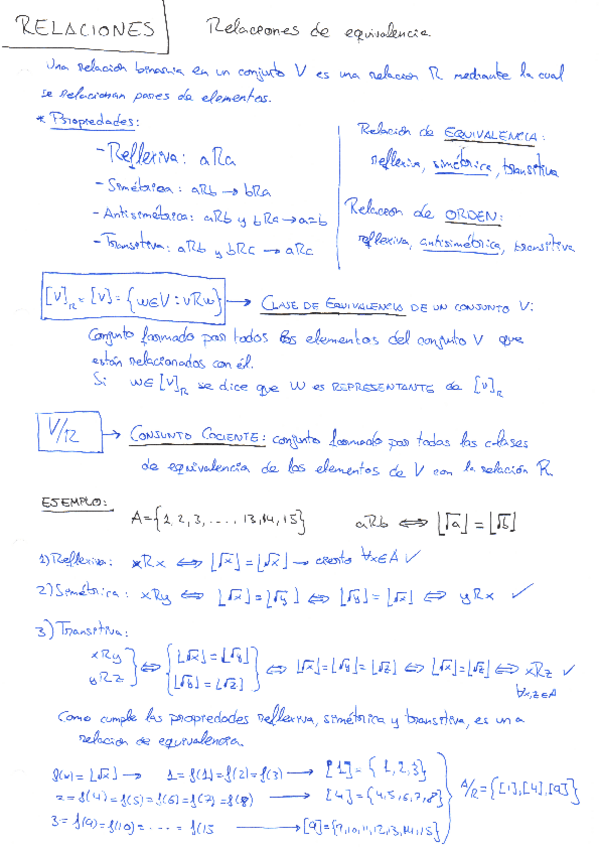 RELACIONES
Relaciones de equivalencia.
Una relación binaria en un conjunto V es una relación R mediante la cual
se relacionan pares de elementos.
* Propiedades:
- Reflexiva: aRa
- Simétrica: aRb → bRa
- Antisimétrica: aRb y bRa → a=b
- Transitiva: aRb y bRc → aRc
Relación de EQUIVALENCIA:
reflexiva, simétrica, transitiva
Relación de ORDEN:
reflexiva, antisimétrica, transitiva
[v]R = [v] = {w∈V : vRw} → CLASE DE EQUIVALENCIA DE UN CONJUNTO V:
Conjunto formado por todos los elementos del conjunto V que
están relacionados con él.
Si w∈[v]R se dice que W es REPRESENTANTE de [v]R
V/R → CONJUNTO COCIENTE: conjunto formado por todas las clases
de equivalencia de los elementos de V con la relación R.
EJEMPLO:
A={1,2,3,....,13,14,15} aRb ⇔ ⌊√a⌋=⌊√b⌋
1) Reflexiva: xRx ⇔ ⌊√x⌋=⌊√x⌋ → cierto ∀x∈A ✓
2) Simétrica: xRy ⇔ ⌊√x⌋=⌊√y⌋ ⇔ ⌊√y⌋=⌊√x⌋ ⇔ yRx ✓
3) Transitiva:
xRy } ⇔ { ⌊√x⌋=⌊√y⌋ } ⇔ ⌊√x⌋=⌊√y⌋=⌊√z⌋ ⇔ ⌊√x⌋=⌊√z⌋ ⇔ xRz ✓
yRz ⌊√y⌋=⌊√z⌋
∀x,z∈A
Como cumple las propiedades reflexiva, simétrica y transitiva, es una
relación de equivalencia.
f(x)=⌊√x⌋ → 1=f(1)=f(2)=f(3) → [1]={1,2,3}
2=f(4)=f(5)=f(6)=f(7)=f(8) → [4]={4,5,6,7,8}
A/R={[1],[4],[9]}
3=f(9)=f(10)=....=f(15 → [9]={9,10,11,12,13,14,15}